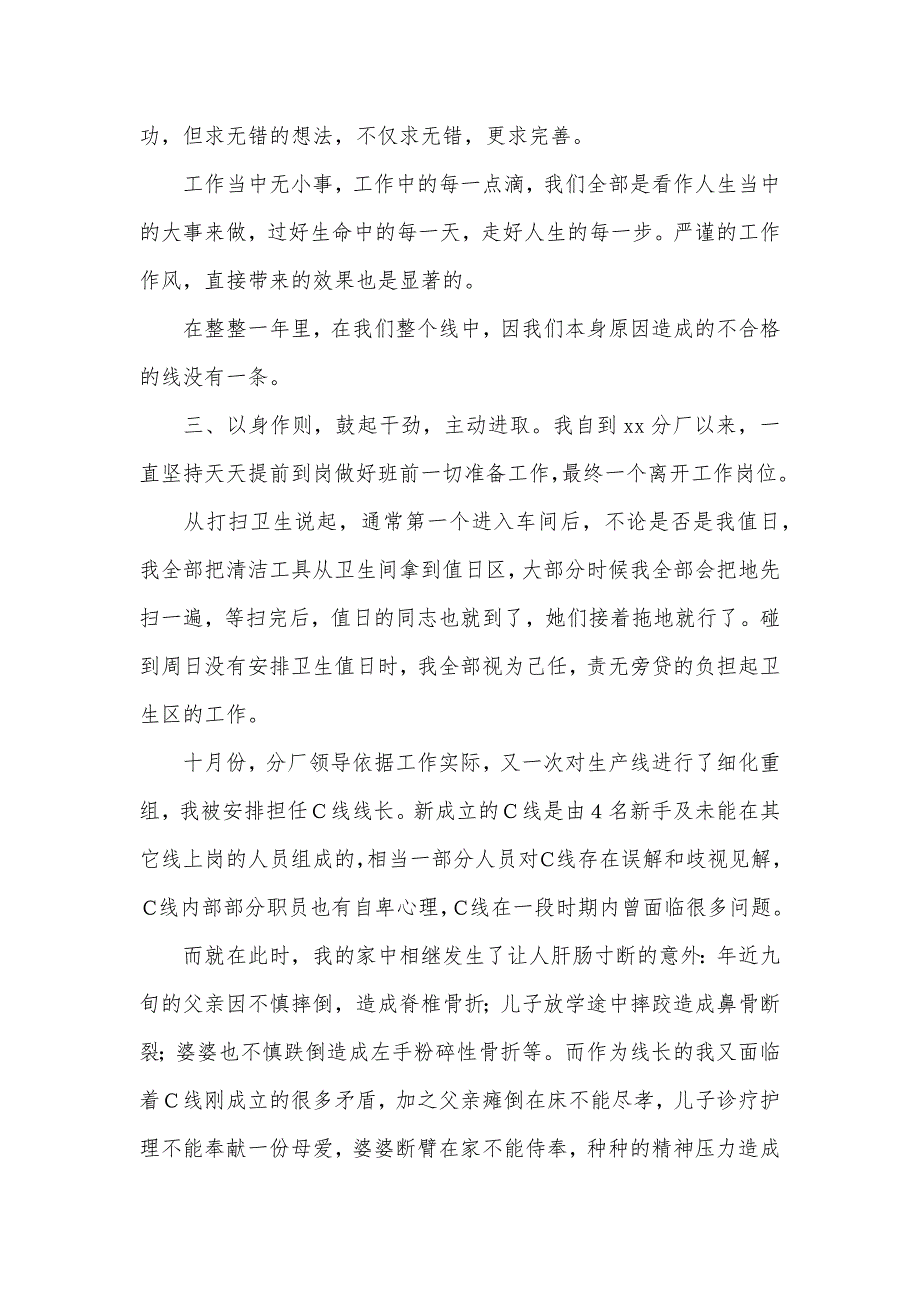 功，但求无错的想法，不仅求无错，更求完善。
工作当中无小事，工作中的每一点滴，我们全部是看作人生当中
的大事来做，过好生命中的每一天，走好人生的每一步。严谨的工作
作风，直接带来的效果也是显著的。
在整整一年里，在我们整个线中，因我们本身原因造成的不合格
的线没有一条。
三、以身作则，鼓起干劲，主动进取。我自到 xx 分厂以来，一
直坚持天天提前到岗做好班前一切准备工作，最终一个离开工作岗位。
从打扫卫生说起，通常第一个进入车间后，不论是否是我值日，
我全部把清洁工具从卫生间拿到值日区，大部分时候我全部会把地先
扫一遍，等扫完后，值日的同志也就到了，她们接着拖地就行了。碰
到周日没有安排卫生值日时，我全部视为己任，责无旁贷的负担起卫
生区的工作。
十月份，分厂领导依据工作实际，又一次对生产线进行了细化重
组，我被安排担任C线线长。新成立的C线是由 4 名新手及未能在其
它线上岗的人员组成的，相当一部分人员对C线存在误解和歧视见解，
C线内部部分职员也有自卑心理，C线在一段时期内曾面临很多问题。
而就在此时，我的家中相继发生了让人肝肠寸断的意外：年近九
旬的父亲因不慎摔倒，造成脊椎骨折；儿子放学途中摔跤造成鼻骨断
裂；婆婆也不慎跌倒造成左手粉碎性骨折等。而作为线长的我又面临
着C线刚成立的很多矛盾，加之父亲瘫倒在床不能尽孝，儿子诊疗护
理不能奉献一份母爱，婆婆断臂在家不能侍奉，种种的精神压力造成